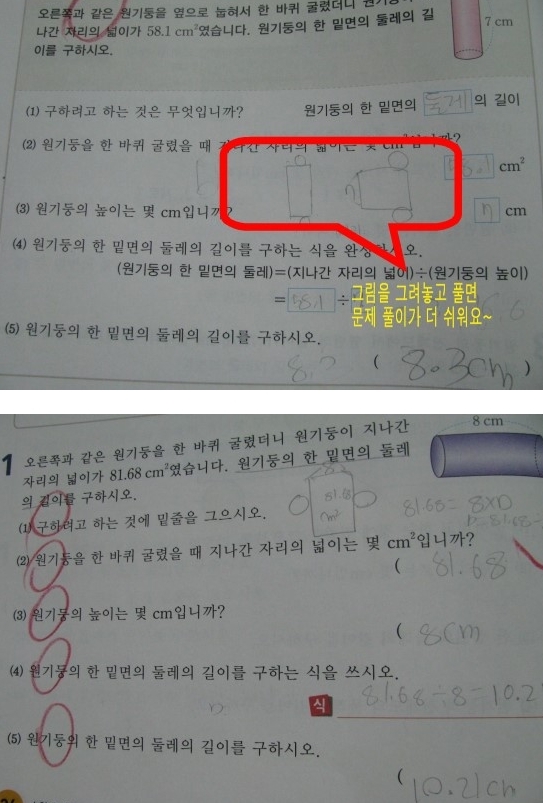 오른쪽과 같은 원기둥을 옆으로 눕혀서 한 바퀴 굴렸더니
나간 자리의 넓이가 58.1 cm²였습니다. 원기둥의 한 밑면의 둘레의 길
이를 구하시오.
7 cm
(1) 구하려고 하는 것은 무엇입니까? 원기둥의 한 밑면의 둘레의 길이
(2) 원기둥을 한 바퀴 굴렸을 때 지나간 자리의 넓이는 몇 cm²입니까?
58.1 cm²
(3) 원기둥의 높이는 몇 cm입니까?
7 cm
(4) 원기둥의 한 밑면의 둘레의 길이를 구하는 식을 완성하시오.
(원기둥의 한 밑면의 둘레)=(지나간 자리의 넓이)÷(원기둥의 높이)
= 58.1 ÷
그림을 그려놓고 풀면
문제 풀이가 더 쉬워요~
(5) 원기둥의 한 밑면의 둘레의 길이를 구하시오.
( 8.3cm )
8 cm
1 오른쪽과 같은 원기둥을 한 바퀴 굴렸더니 원기둥이 지나간
자리의 넓이가 81.68 cm²였습니다. 원기둥의 한 밑면의 둘레
의 길이를 구하시오.
81.68= 8×
(1) 구하려고 하는 것에 밑줄을 그으시오.
(2) 원기둥을 한 바퀴 굴렸을 때 지나간 자리의 넓이는 몇 cm²입니까?
( 81.68
(3) 원기둥의 높이는 몇 cm입니까?
( 8cm
(4) 원기둥의 한 밑면의 둘레의 길이를 구하는 식을 쓰시오.
식 81.68÷8=10.2
(5) 원기둥의 한 밑면의 둘레의 길이를 구하시오.
( 10.21cm